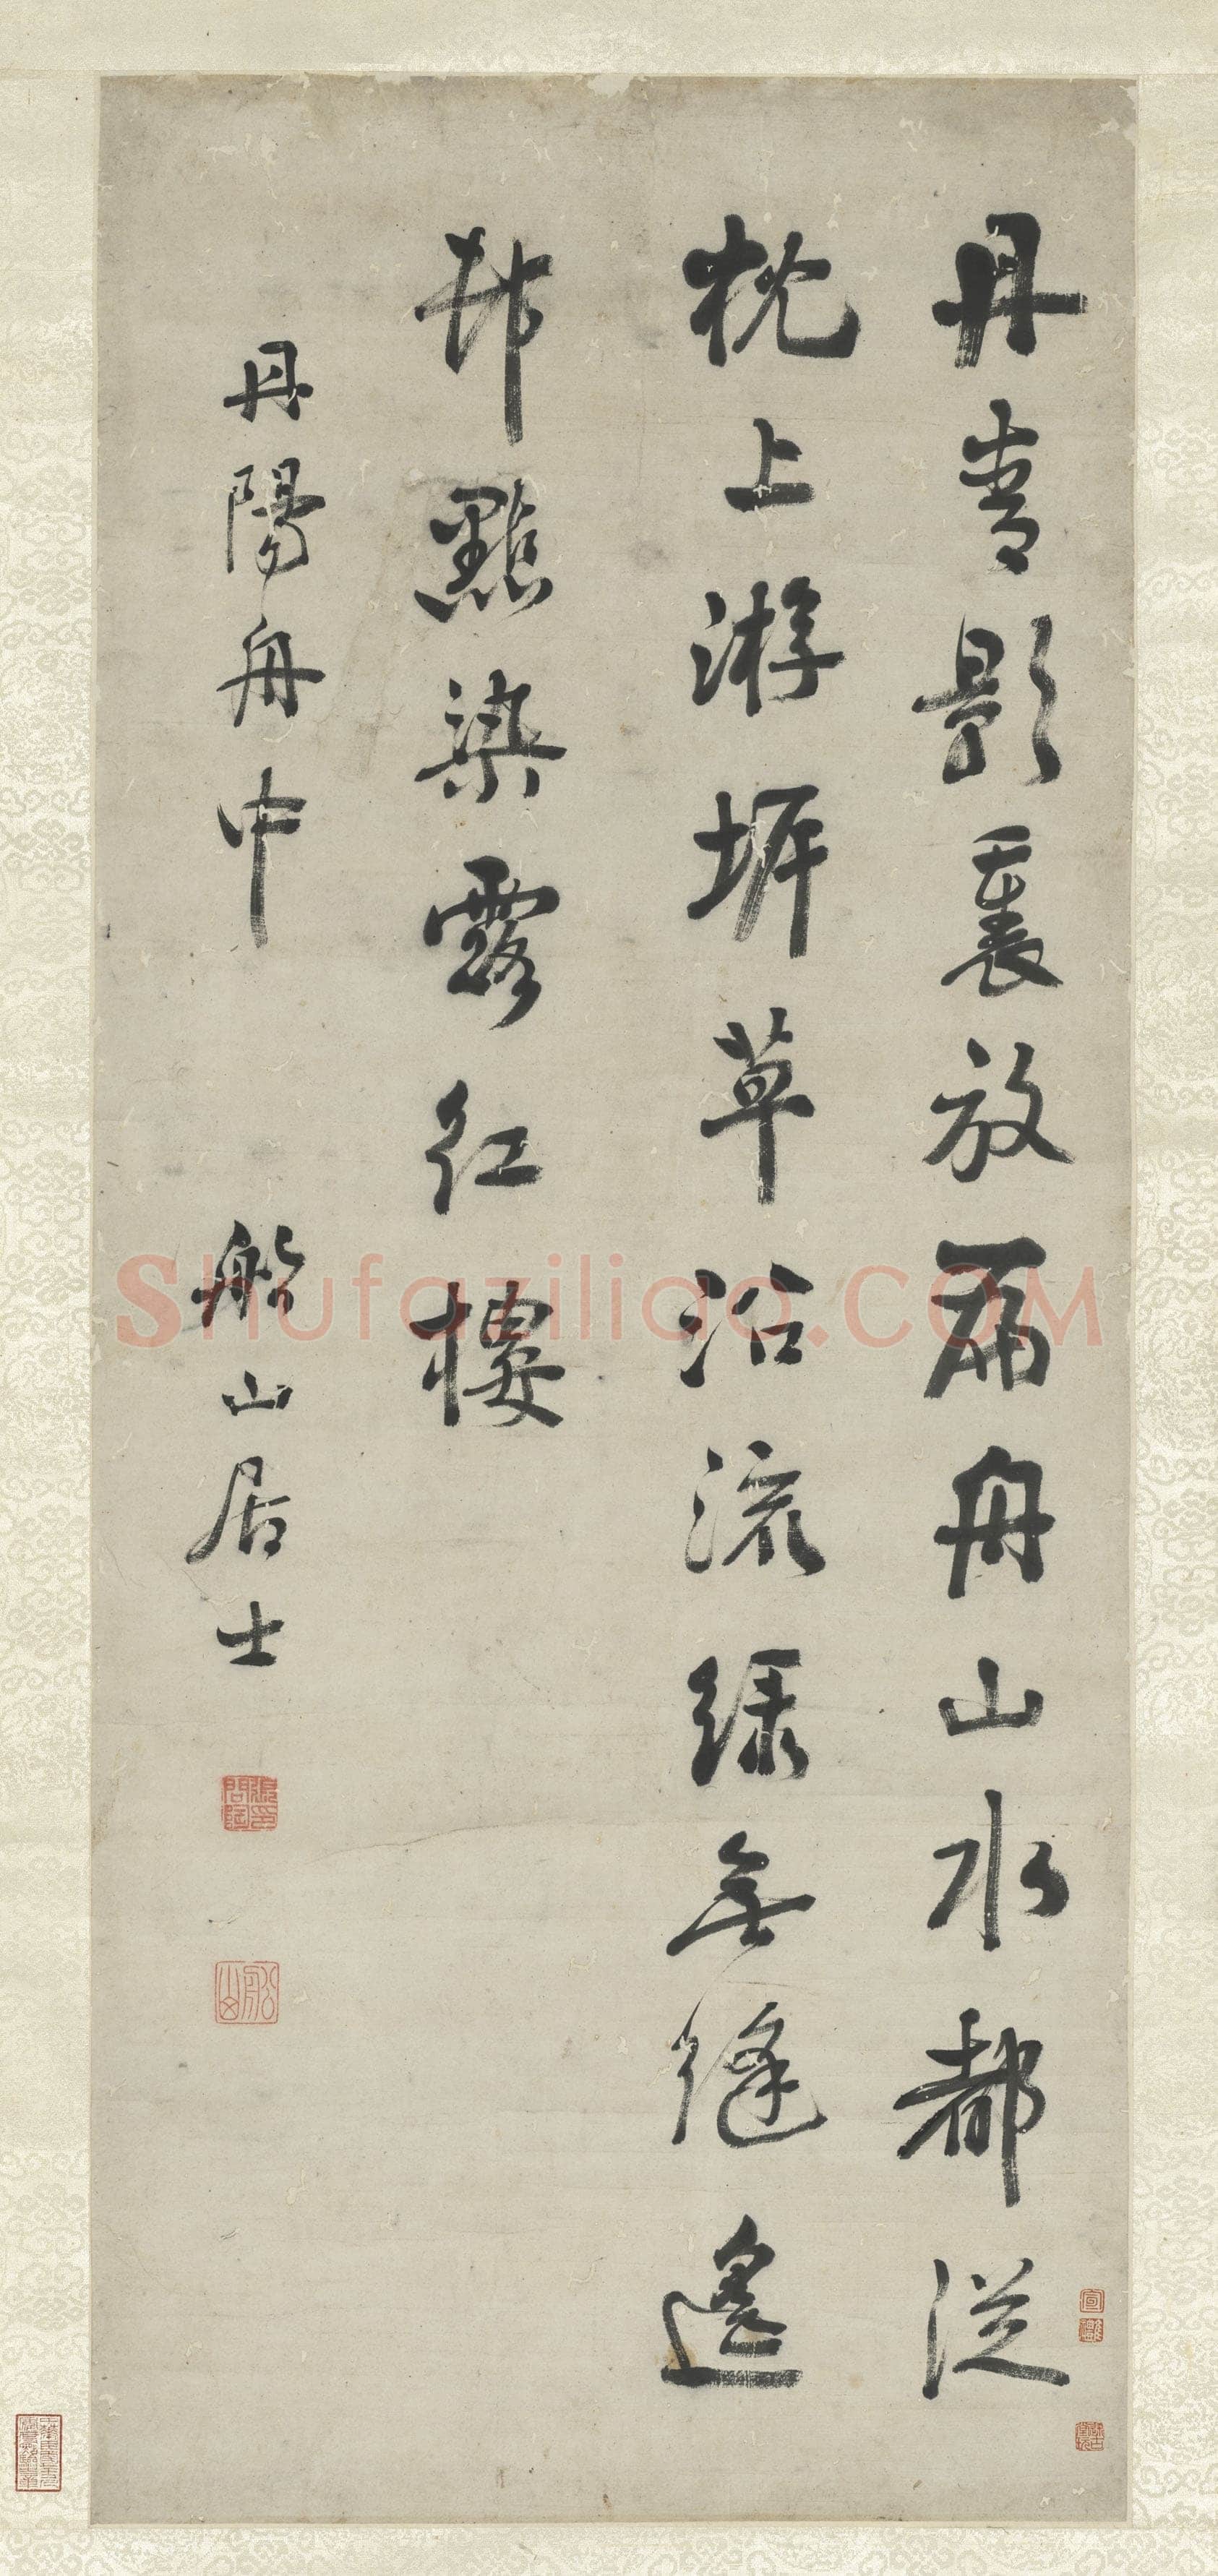 丹青影裏放扁舟山水都從
枕上游坼草沿流綠無縫遙
邨點染露紅樓
丹陽舟中　船山居士
張問陶印
船山
Shufaziliao.COM